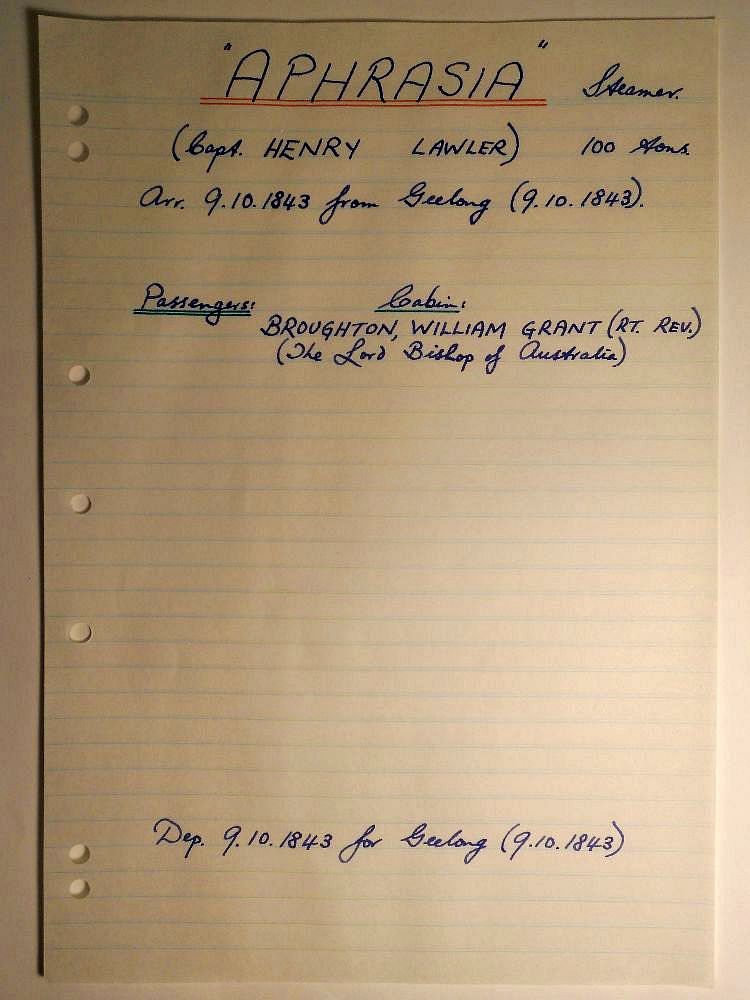 "APHRASIA" Steamer.
(Capt. HENRY LAWLER) 100 tons.
Arr. 9.10.1843 from Geelong (9.10.1843).
Passengers: Cabin:
BROUGHTON, WILLIAM GRANT (RT. REV.)
(The Lord Bishop of Australia)
Dep. 9.10.1843 for Geelong (9.10.1843)